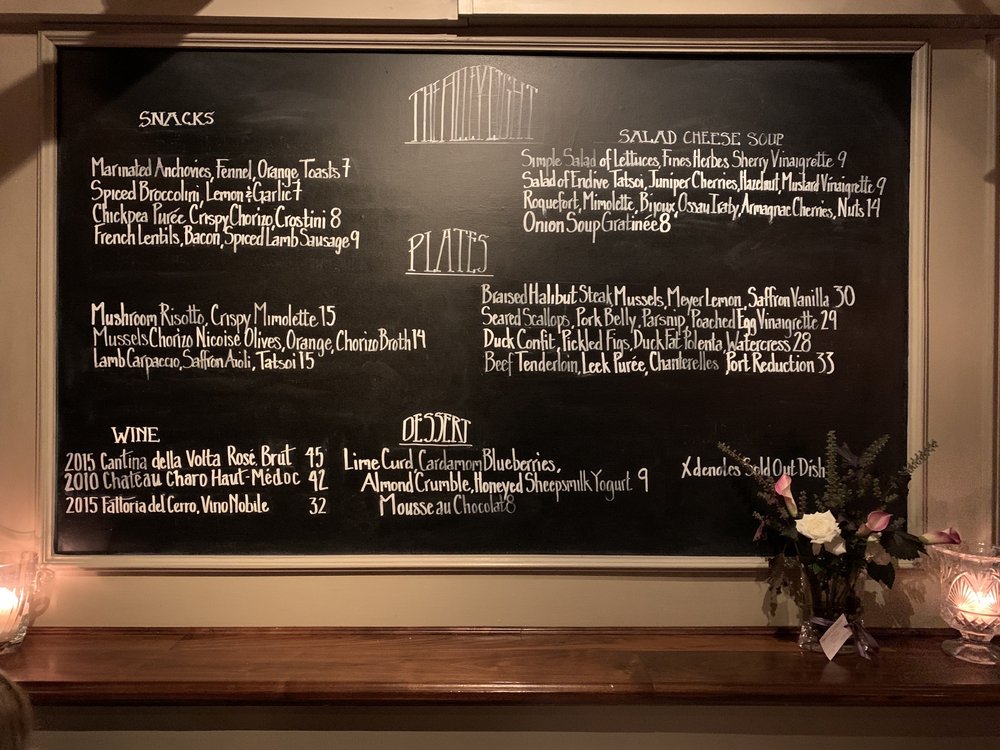 THE ALLEY LIGHT
SNACKS
Marinated Anchovies, Fennel, Orange Toasts 7
Spiced Broccolini, Lemon & Garlic 7
Chickpea Purée, Crispy Chorizo, Crostini 8
French Lentils, Bacon, Spiced Lamb Sausage 9
SALAD CHEESE SOUP
Simple Salad of Lettuces, Fines Herbes Sherry Vinaigrette 9
Salad of Endive Tatsoi, Juniper Cherries, Hazelnut, Mustard Vinaigrette 9
Roquefort, Mimolette, Bijoux, Ossau Iraty, Armagnac Cherries, Nuts 14
Onion Soup Gratinée 8
PLATES
Mushroom Risotto, Crispy Mimolette 15
Mussels Chorizo Nicoise Olives, Orange, Chorizo Broth 14
Lamb Carpaccio, Saffron Aioli, Tatsoi 15
Braised Halibut Steak Mussels, Meyer Lemon, Saffron Vanilla 30
Seared Scallops, Pork Belly, Parsnip, Poached Egg Vinaigrette 29
Duck Confit, Pickled Figs, Duck Fat Polenta, Watercress 28
Beef Tenderloin, Leek Purée, Chanterelles Port Reduction 33
WINE
2015 Cantina della Volta Rosé, Brut 45
2010 Château Charo Haut-Médoc 42
2015 Fattoria del Cerro, Vino Nobile 32
DESSERT
Lime Curd, Cardamom Blueberries,
Almond Crumble, Honeyed Sheepsmilk Yogurt 9
Mousse au Chocolat 8
X denotes Sold Out Dish